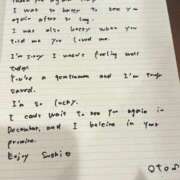 I was so happy to see you
again after so long.
I was also happy when you
told me you loved me.
I'm sorry I wasn't feeling well
today.
You're a gentleman and I'm truly
saved.
I'm so lucky.
I can't wait to see you again in
December, and I believe in your
promise.
Enjoy Sushi